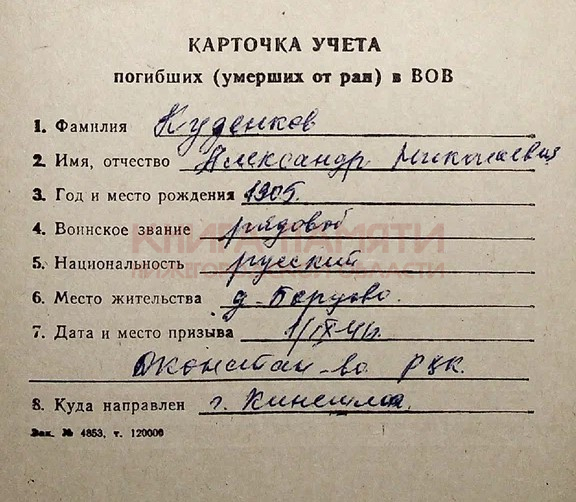 КАРТОЧКА УЧЕТА
погибших (умерших от ран) в ВОВ
1. Фамилия Куденков
2. Имя, отчество Александр Николаевич
3. Год и место рождения 1905.
4. Воинское звание рядовой
КНИГА ПАМЯТИ
5. Национальность русский
НИЖЕГОРОДСКОЙ ОБЛАСТИ
6. Место жительства д-Борцово.
7. Дата и место призыва 1/IX-41г.
Дконстан-во РВК.
8. Куда направлен г. Кинешма.
Зак. № 4853, т. 120000